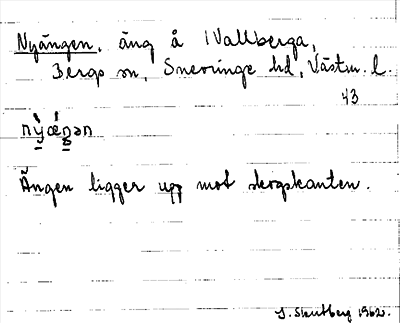 Nyängen, äng å Wallberga,
Bergs sn, Snevringe hd, Västm. l.
43
nỳæ̀ŋən
Ängen ligger upp mot skogskanten.
S. Stentberg 1962.